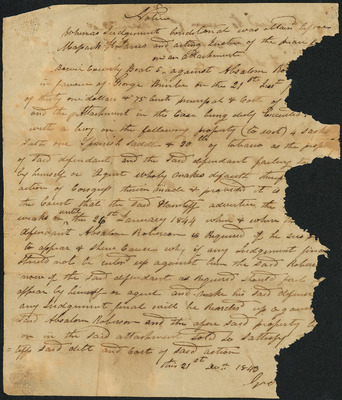 Notice
Whereas Judgement Conditional was attain before
and acting Justice of the peace
on an Attachment
County against Absalom Ro
in favour of George on the 21st
of thirty one dollars & 75 Cents principal & Cost of
and the Attachment in the Case being duly Executed
with a levy on the following property (to wit) 2 Sacks
Salt one Spanish Saddle & 20 lb of Tobacco as the prop
of Said defendant and the Said defendant failing to
by himself or Agent which makes default
action of Congress therein made & provided it is
the Court that the Said Plaintiff advertise the
weeks until the 26th January 1844 when & where
defendant Absalom Roberson is Required if he see
to appear & Shew Cause why if any Judgement final
Should not be enterd up against him the Said Rober
now if the Said defendant as required Shall fail to
appear by himself or agent and make his Said defence
any Judgement final will be Rendered up against
Said Absalom Roberson and the afore Said property
on in the Said attachment Sold to Sattisfy
Said debt and Cost of Said action
This 21st Dec 1843